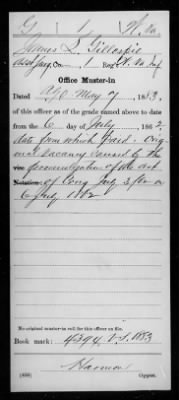 G | 1 | W. Va.
James L. Gillospie
Asst Surg, Co. 1 Reg't W. Va. Inf.
Office Muster-in
Dated A.G.O. May 7, 1883.
of this officer as of the grade named above to date
from the 6 day of July, 1862,
date from which paid. Orig-
inal vacancy caused by the
of the act
Notation: of Cong July 2/62 on
6 July 1862
No original muster-in roll for this officer on file.
Book mark: 4394. V.S. 1883
Harmon
Copyist.